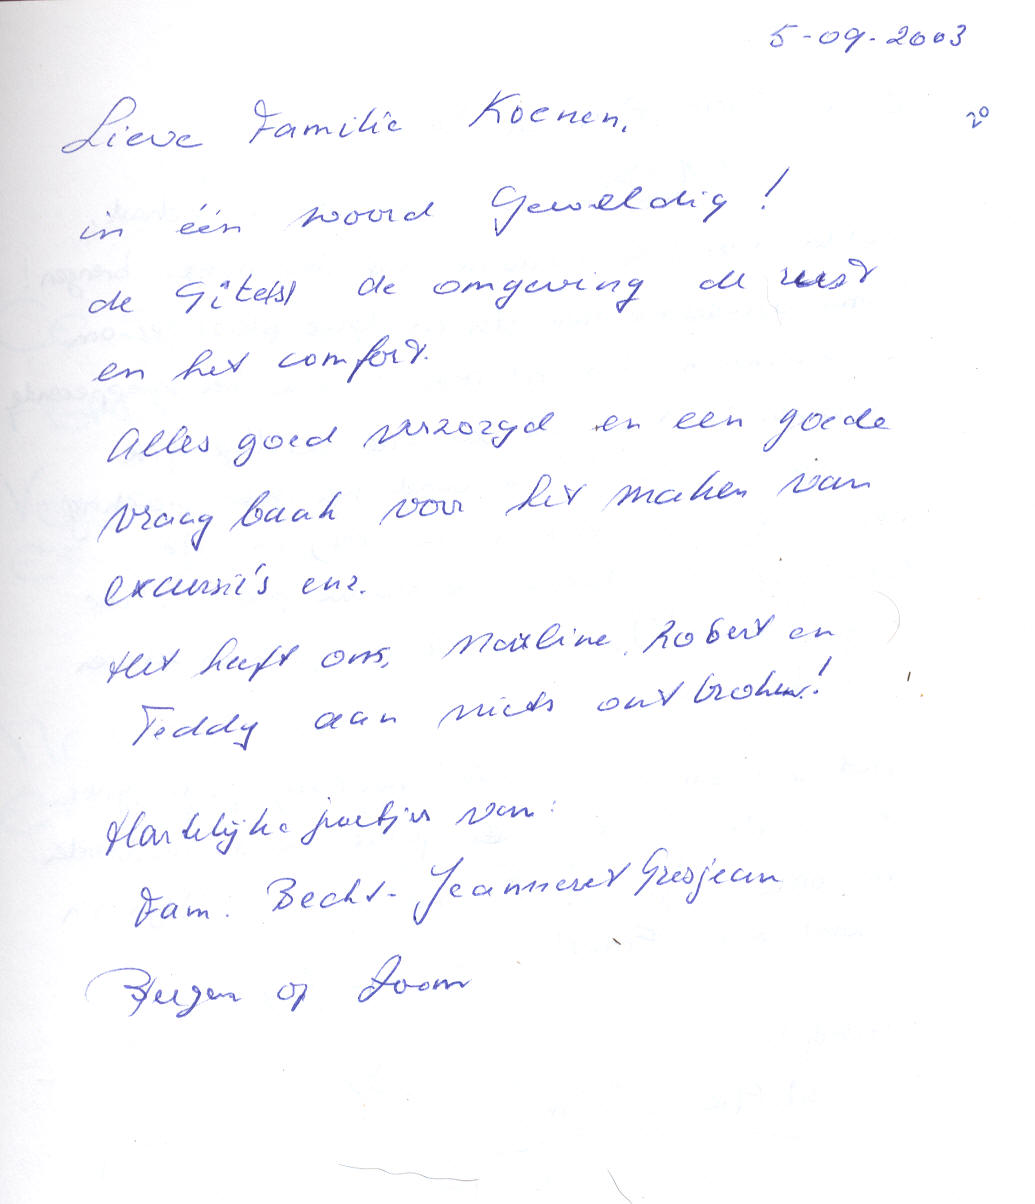 5-09-2003
20
Lieve Familie Koenen,
in één woord Geweldig!
de Gîte(s) de omgeving de rust
en het comfort.
Alles goed verzorgd en een goede
vraag baak voor het maken van
excursie's enz.
Het heeft ons, Robert en
Teddy aan niets ontbroken!
Hartelijke groetjes van:
Fam. Becht-Jeanneret Grosjean
Bergen op Zoom